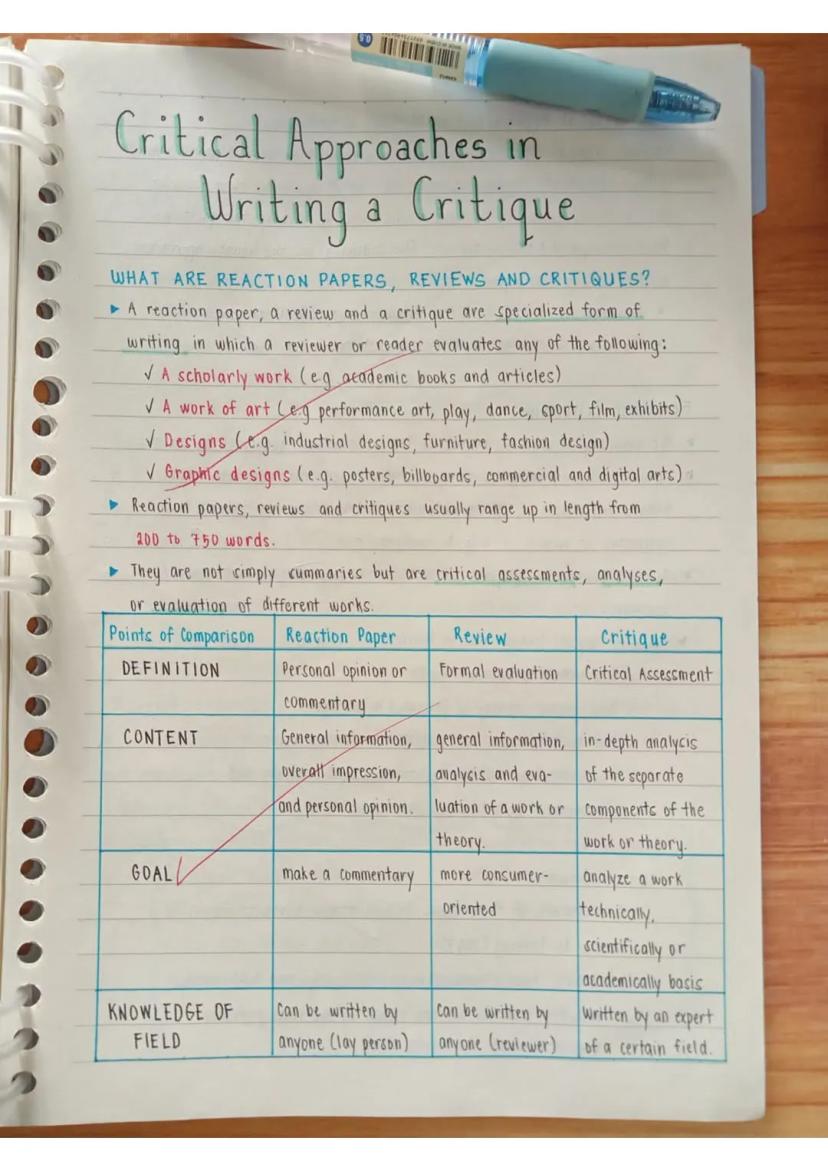 0.5
Critical Approaches in
Writing a Critique
WHAT ARE REACTION PAPERS, REVIEWS AND CRITIQUES?
▸ A reaction paper, a review and a critique are specialized form of
writing in which a reviewer or reader evaluates any of the following:
√ A scholarly work (e.g academic books and articles)
√ A work of art (e.g performance art, play, dance, sport, film, exhibits)
√ Designs (e.g. industrial designs, furniture, fashion design)
√ Graphic designs (e.g. posters, billboards, commercial and digital arts)
▸ Reaction papers, reviews and critiques usually range up in length from
200 to 750 words.
▸ They are not simply summaries but are critical assessments, analyses,
or evaluation of different works.
Points of Comparison Reaction Paper Review Critique
DEFINITION Personal opinion or Formal evaluation Critical Assessment
commentary
CONTENT General information, general information, in-depth analysis
overall impression, analysis and eva- of the separate
and personal opinion. luation of a work or components of the
theory. work or theory.
GOAL make a commentary more consumer- analyze a work
oriented technically,
scientifically or
academically basis
KNOWLEDGE OF Can be written by Can be written by Written by an expert
FIELD anyone (lay person) anyone (reviewer) of a certain field.